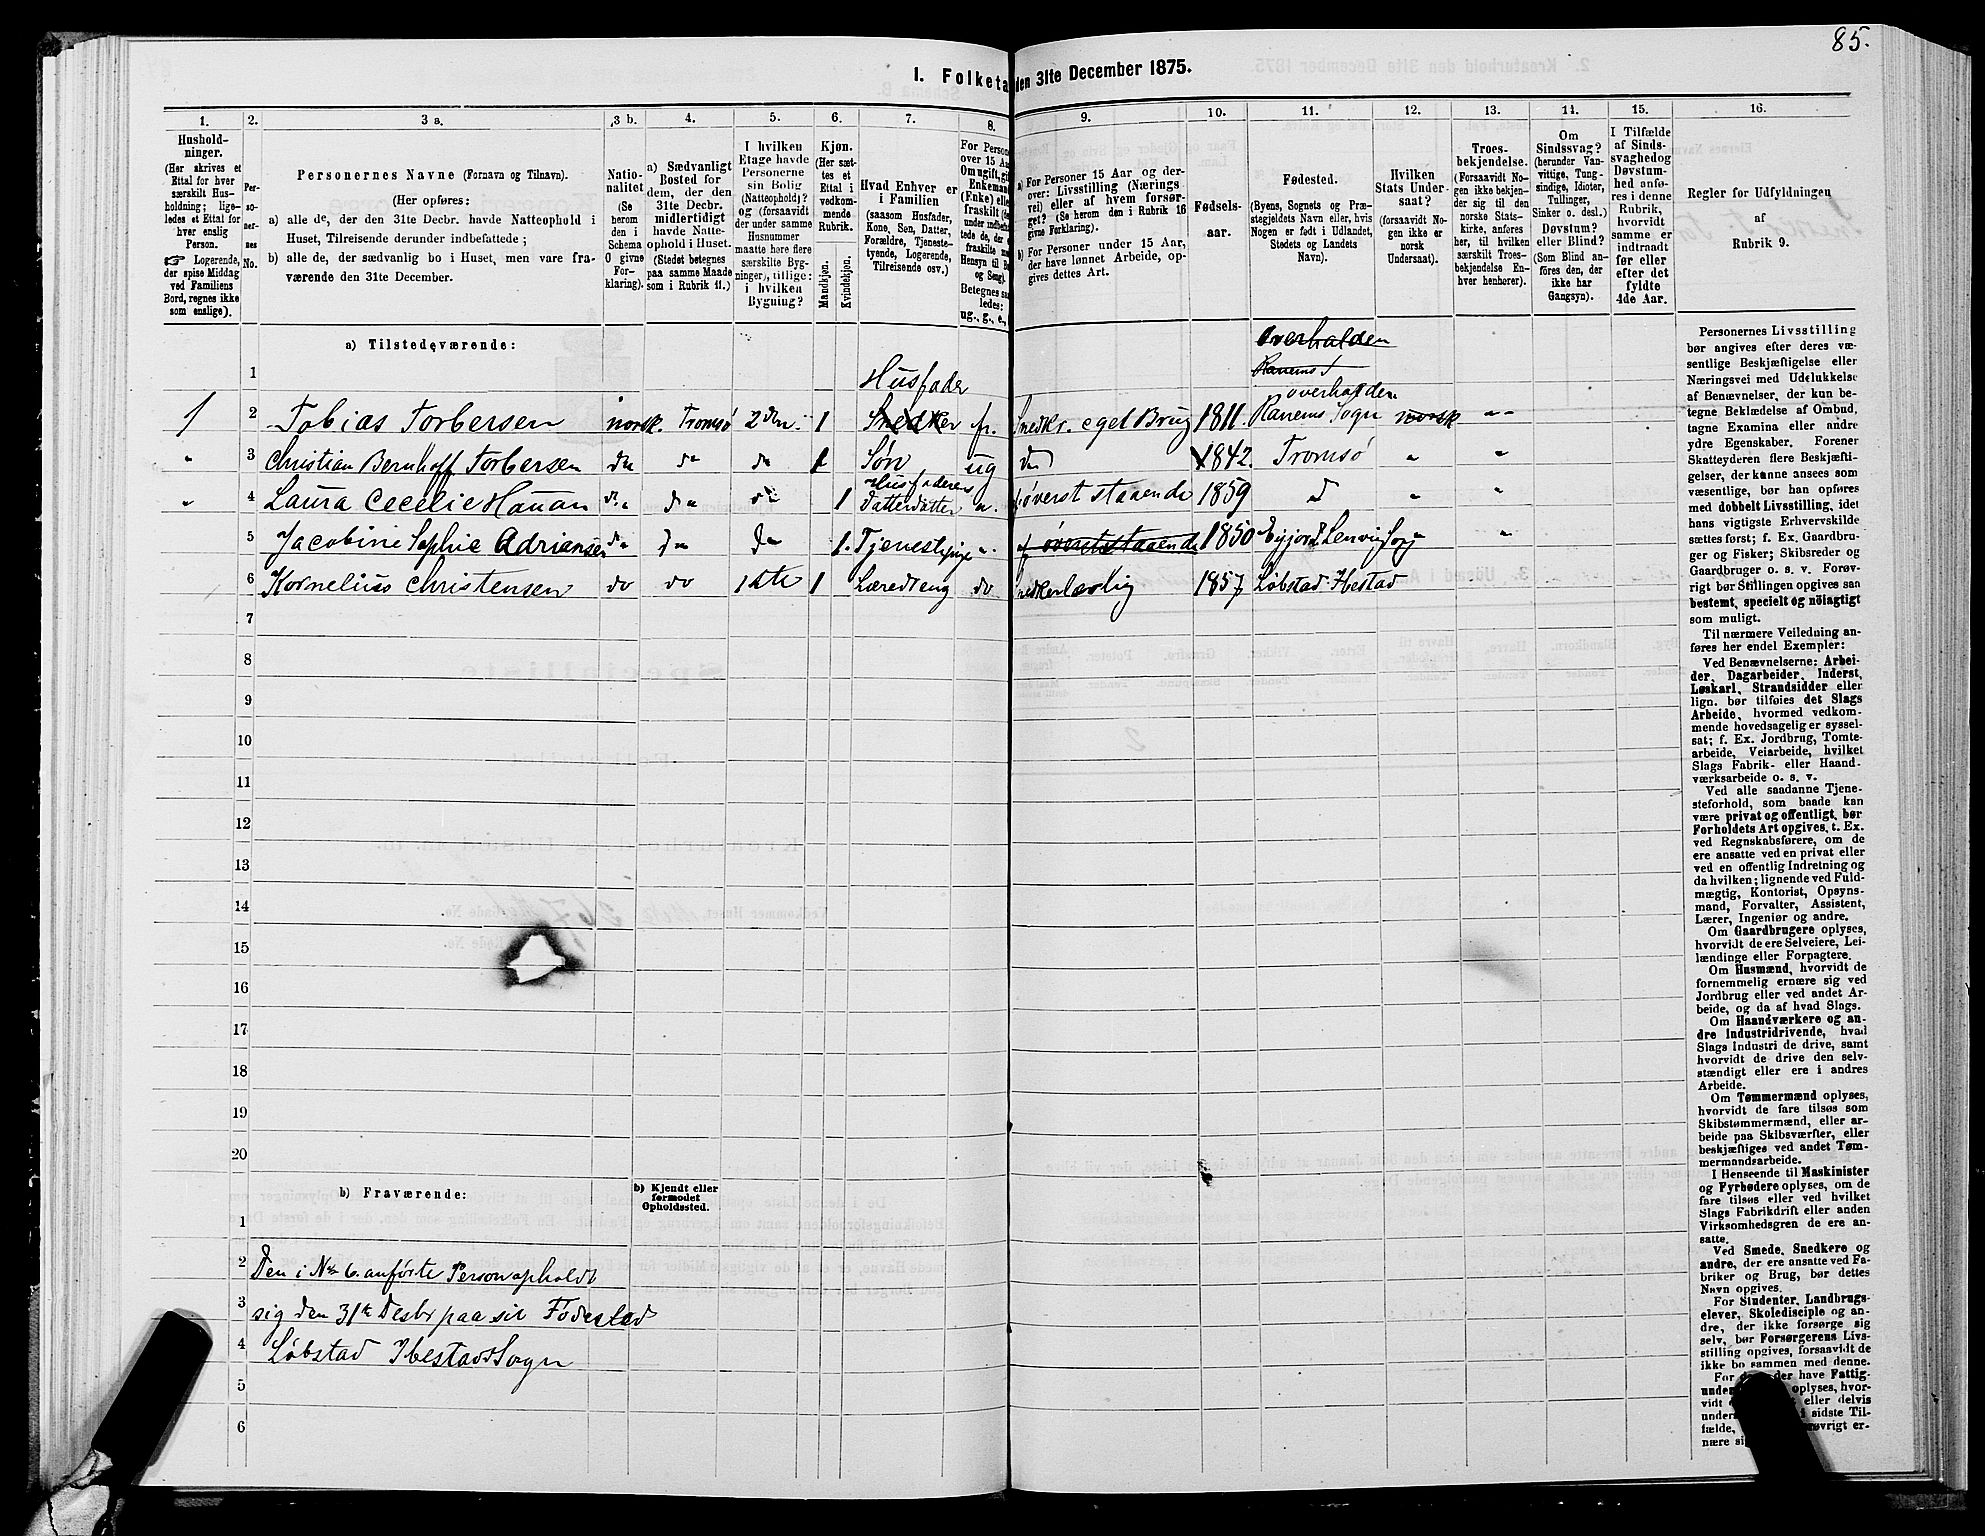 85.
1. Folketa
den 31te December 1875.
1.
2.
3 a.
3 b.
4.
5.
6.
7.
8.
9.
10.
11.
12.
13.
14.
15.
16.
Hushold-
ninger.
(Her skrives et
Ettal for hver
særskilt Hus-
holdning; lige-
ledes et Ettal for
hver enslig
Person.
☞ Logerende,
der spise Middag
ved Familiens
Bord, regnes ikke
som enslige).
Per-
so-
ner-
nes
No.
Personernes Navne (Fornavn og Tilnavn).
(Her opføres:
a) alle de, der den 31te Decbr. havde Natteophold i
Huset, Tilreisende derunder indbefattede;
b) alle de, der sædvanlig bo i Huset, men vare fra-
værende den 31te December.
Natio-
nalitet
(Se
herom
den i
Schema
O givne
For-
klaring).
a) Sædvanligt
Bosted for
dem, der den
31te Decbr.
midlertidigt
havde Natte-
ophold i Huset.
(Stedet betegnes
paa samme Maade
som i Rubrik 11.)
I hvilken
Etage havde
Personerne
sin Bolig
(Natteophold)?
og (forsaavidt
der under samme
Husnummer
maatte høre flere
særskilte Byg-
ninger), tillige:
i hvilken
Bygning?
Kjøn.
(Her sæt-
tes et
Ettal i
vedkom-
mende
Rubrik.
Mandkjøn.
Kvindekjøn.
Hvad Enhver er
i Familien
(saasom Husfader,
Kone, Søn, Datter,
Forældre, Tjeneste-
tyende, Logerende,
Tilreisende osv.)
For Person
over 15 Aa
Om ugift, gif
Enkemand
(Enke) eller
fraskilt
Betegnes saa
ledes:
ug., g., e.,
a) For Personer 15 Aar og der-
over: Livsstilling (Nærings
vei) eller af hvem forsør-
get? (Se herom den i Rubrik 16
givne Forklaring).
b) For Personer under 15 Aar,
der have lønnet Arbeide, op-
gives dettes Art.
Fødsels-
aar.
Fødested.
(Byens, Sognets og Præ-
stegjeldets Navn eller, hvis
Nogen er født i Udlandet,
Stedets og Landets
Navn).
Hvilken
Stats Under-
saat?
(forsaavidt No-
gen ikke er
norsk
Undersaat).
Troes-
bekjendelse.
(Forsaavidt No-
gen ikke bekjen-
der sig til den
norske Stats-
kirke, anføres
her, til hvilken
særskilt Troes-
bekjendelse En-
hver henhører).
Om
Sindssvag?
(herunder Van-
vittige, Tung-
sindige, Idioter,
Tullinger,
Sinker o. desl.)
Døvstum?
eller Blind?
(Som Blind an-
føres den, der
ikke har
Gangsyn).
I Tilfælde
af Sinds-
svaghed og
Døvstum-
hed anfø-
res i denne
Rubrik,
hvorvidt
samme er
indtraadt
før eller
efter det
fyldte
4de Aar.
Regler for Udfyldningen
af
Rubrik 9.
a) Tilstedeværende:
Overhalden
1 Husfader Ranems
overhalden
1 2 Tobias Torbersen norsk. Tromsø 2den. 1 Snedker fr. Snedkr. eget Brug 1811. Ranems Sogn norsk " "
" 3 Christian Bernhoff Torbersen do " do 1 Søn ug do 1842. Tromsø " "
Husfaderens
" 4 Laura Cecelie Hauan do do do 1 Datterdatter " øverst staaende 1859 d " "
5 Jacobine Sophie Adriansen do do do 1. Tjenestepige " af øverst staaende 1850 Lenvig Sogn "
6 Kornelius Christensen do do 1ste 1 Læredreng do snedkerlærling 1857 Løbstad Ibestad
7
8
9
10
11
12
13
14
15
16
17
18
19
20
b) Fraværende:
b) Kjendt eller
formodet
Opholdssted.
1
2 Den i No 6. anførte Person opholdt
3 sig den 31te Desbr paa sit Fødested
4 Løbstad Ibestads Sogn
5
6
Personernes Livsstilling
bør angives efter deres væ-
sentlige Beskjæftigelse eller
Næringsvei med Udelukkelse
af Benævnelser, der kun be-
tegne Beklædelse af Ombud,
tagne Examina eller andre
ydre Egenskaber. Forener
Skatteyderen flere Beskjæfti-
gelser, der kunne ansees som
væsentlige, bør han opføres
med dobbelt Livsstilling, idet
hans vigtigste Erhvervskilde
sættes først; f. Ex. Gaardbru-
ger og Fisker; Skibsreder og
Gaardbruger o. s. v. Forøv-
rigt bør Stillingen opgives saa
bestemt, specielt og nöiagtigt
som muligt.
Til nærmere Veiledning an-
føres her endel Exempler:
Ved Benævnelserne: Arbei-
der, Dagarbeider, Inderst,
Løskarl, Strandsidder eller
lign. bør tilføies det Slags
Arbeide, hvormed vedkom-
mende hovedsagelig er syssel-
sat; f. Ex. Jordbrug, Tomte-
arbeide, Veiarbeide, hvilket
Slags Fabrik- eller Haand-
værksarbeide o. s. v.
Ved alle saadanne Tjene-
steforhold, som baade kan
være privat og offentligt, bør
Forholdets Art opgives, t. Ex.
ved Regnskabsførere, om de
ere ansatte ved en privat eller
ved en offentlig Indretning og
da hvilken; lignende ved Fuld-
mægtig, Kontorist, Opsyns-
mand, Forvalter, Assistent,
Lærer, Ingeniør og andre.
Om Gaardbrugere oplyses,
hvorvidt de ere Selveiere, Lei-
lændinge eller Forpagtere.
Om Husmænd, hvorvidt de
fornemmelig ernære sig ved
Jordbrug eller ved andet Ar-
beide, og da af hvad Slags.
Om Haandværkere og an-
dre Industridrivende, hvad
Slags Industri de drive, samt
hvorvidt de drive den selv-
stændigt eller ere i andres
Arbeide.
Om Tømmermænd oplyses,
hvorvidt de fare tilsøs som
Skibstømmermænd, eller ar-
beide paa Skibsværfter, eller
beskjæftiges ved andet Tøm-
mermandsarbeide.
I Henseende til Maskinister
og Fyrbødere oplyses, om de
fare tilsøs eller ved hvilket
Slags Fabrikdrift eller anden
Virksomhedsgren de ere an-
satte.
Ved Smede, Snedkere og
andre, der ere ansatte ved Fa-
briker og Brug, bør dettes
Navn opgives.
For Studenter, Landbrugs-
elever, Skoledisciple og an-
dre, der ikke forsørge sig
selv, bør Forsørgerens Livs-
stilling opgives, forsaavidt de
ikke bo sammen med denne.
For de der have Fattig-
under oplyses, hvor-
vidt eller delvis
unders i sidste Til-
fælde, øvrigt er-
nære si